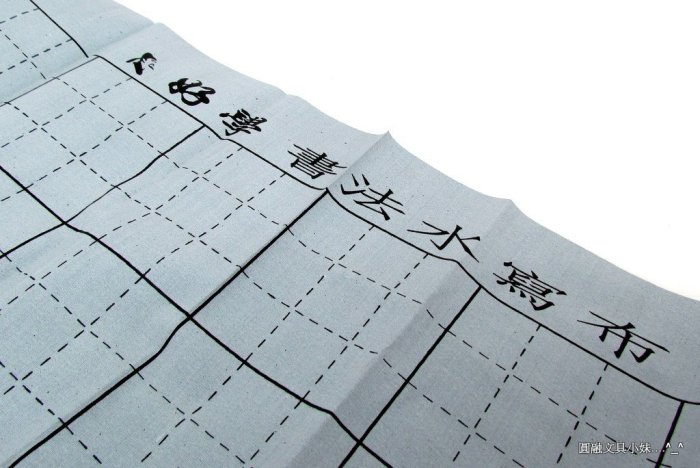 好學 書法水寫布
圓融文具小妹....^_^